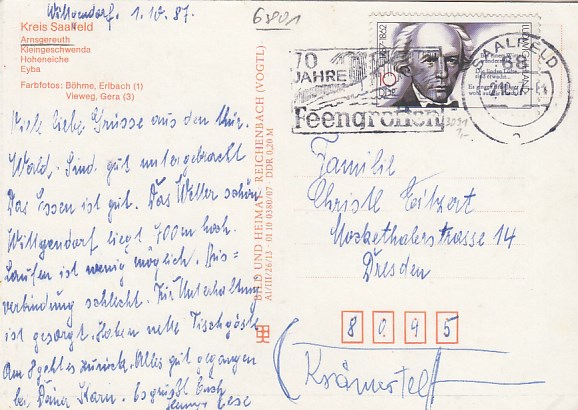 Wittgendorf. 1.10.87.
Kreis Saalfeld
Arnsgereuth
Kleingeschwenda
Hoheneiche
Eyba
Farbfotos: Böhme, Erlbach (1)
Vieweg, Gera (3)
Viele liebe Grüsse aus dem Thür.
Wald. Sind gut untergebracht
Das Essen ist gut. Das Wetter schön
Wittgendorf liegt 400m hoch.
Laufen ist wenig möglich. Bus=
verbindung schlecht. Für Unterhaltung
ist gesorgt. Haben nette Tischgäste
Am 8 geht es zurück. Alles gut gegangen
bei Deiner Karin. Es grüßt Euch
BILD UND HEIMAT REICHENBACH (VOGTL)
A1/III/26/13 01 10 0380/07 DDR 0,20 M
6801
70
JAHRE
Feengrotten
SAALFELD
68
2.10.87
10
DDR
Familie
Christl
Moskethalerstrasse 14
Dresden
8095